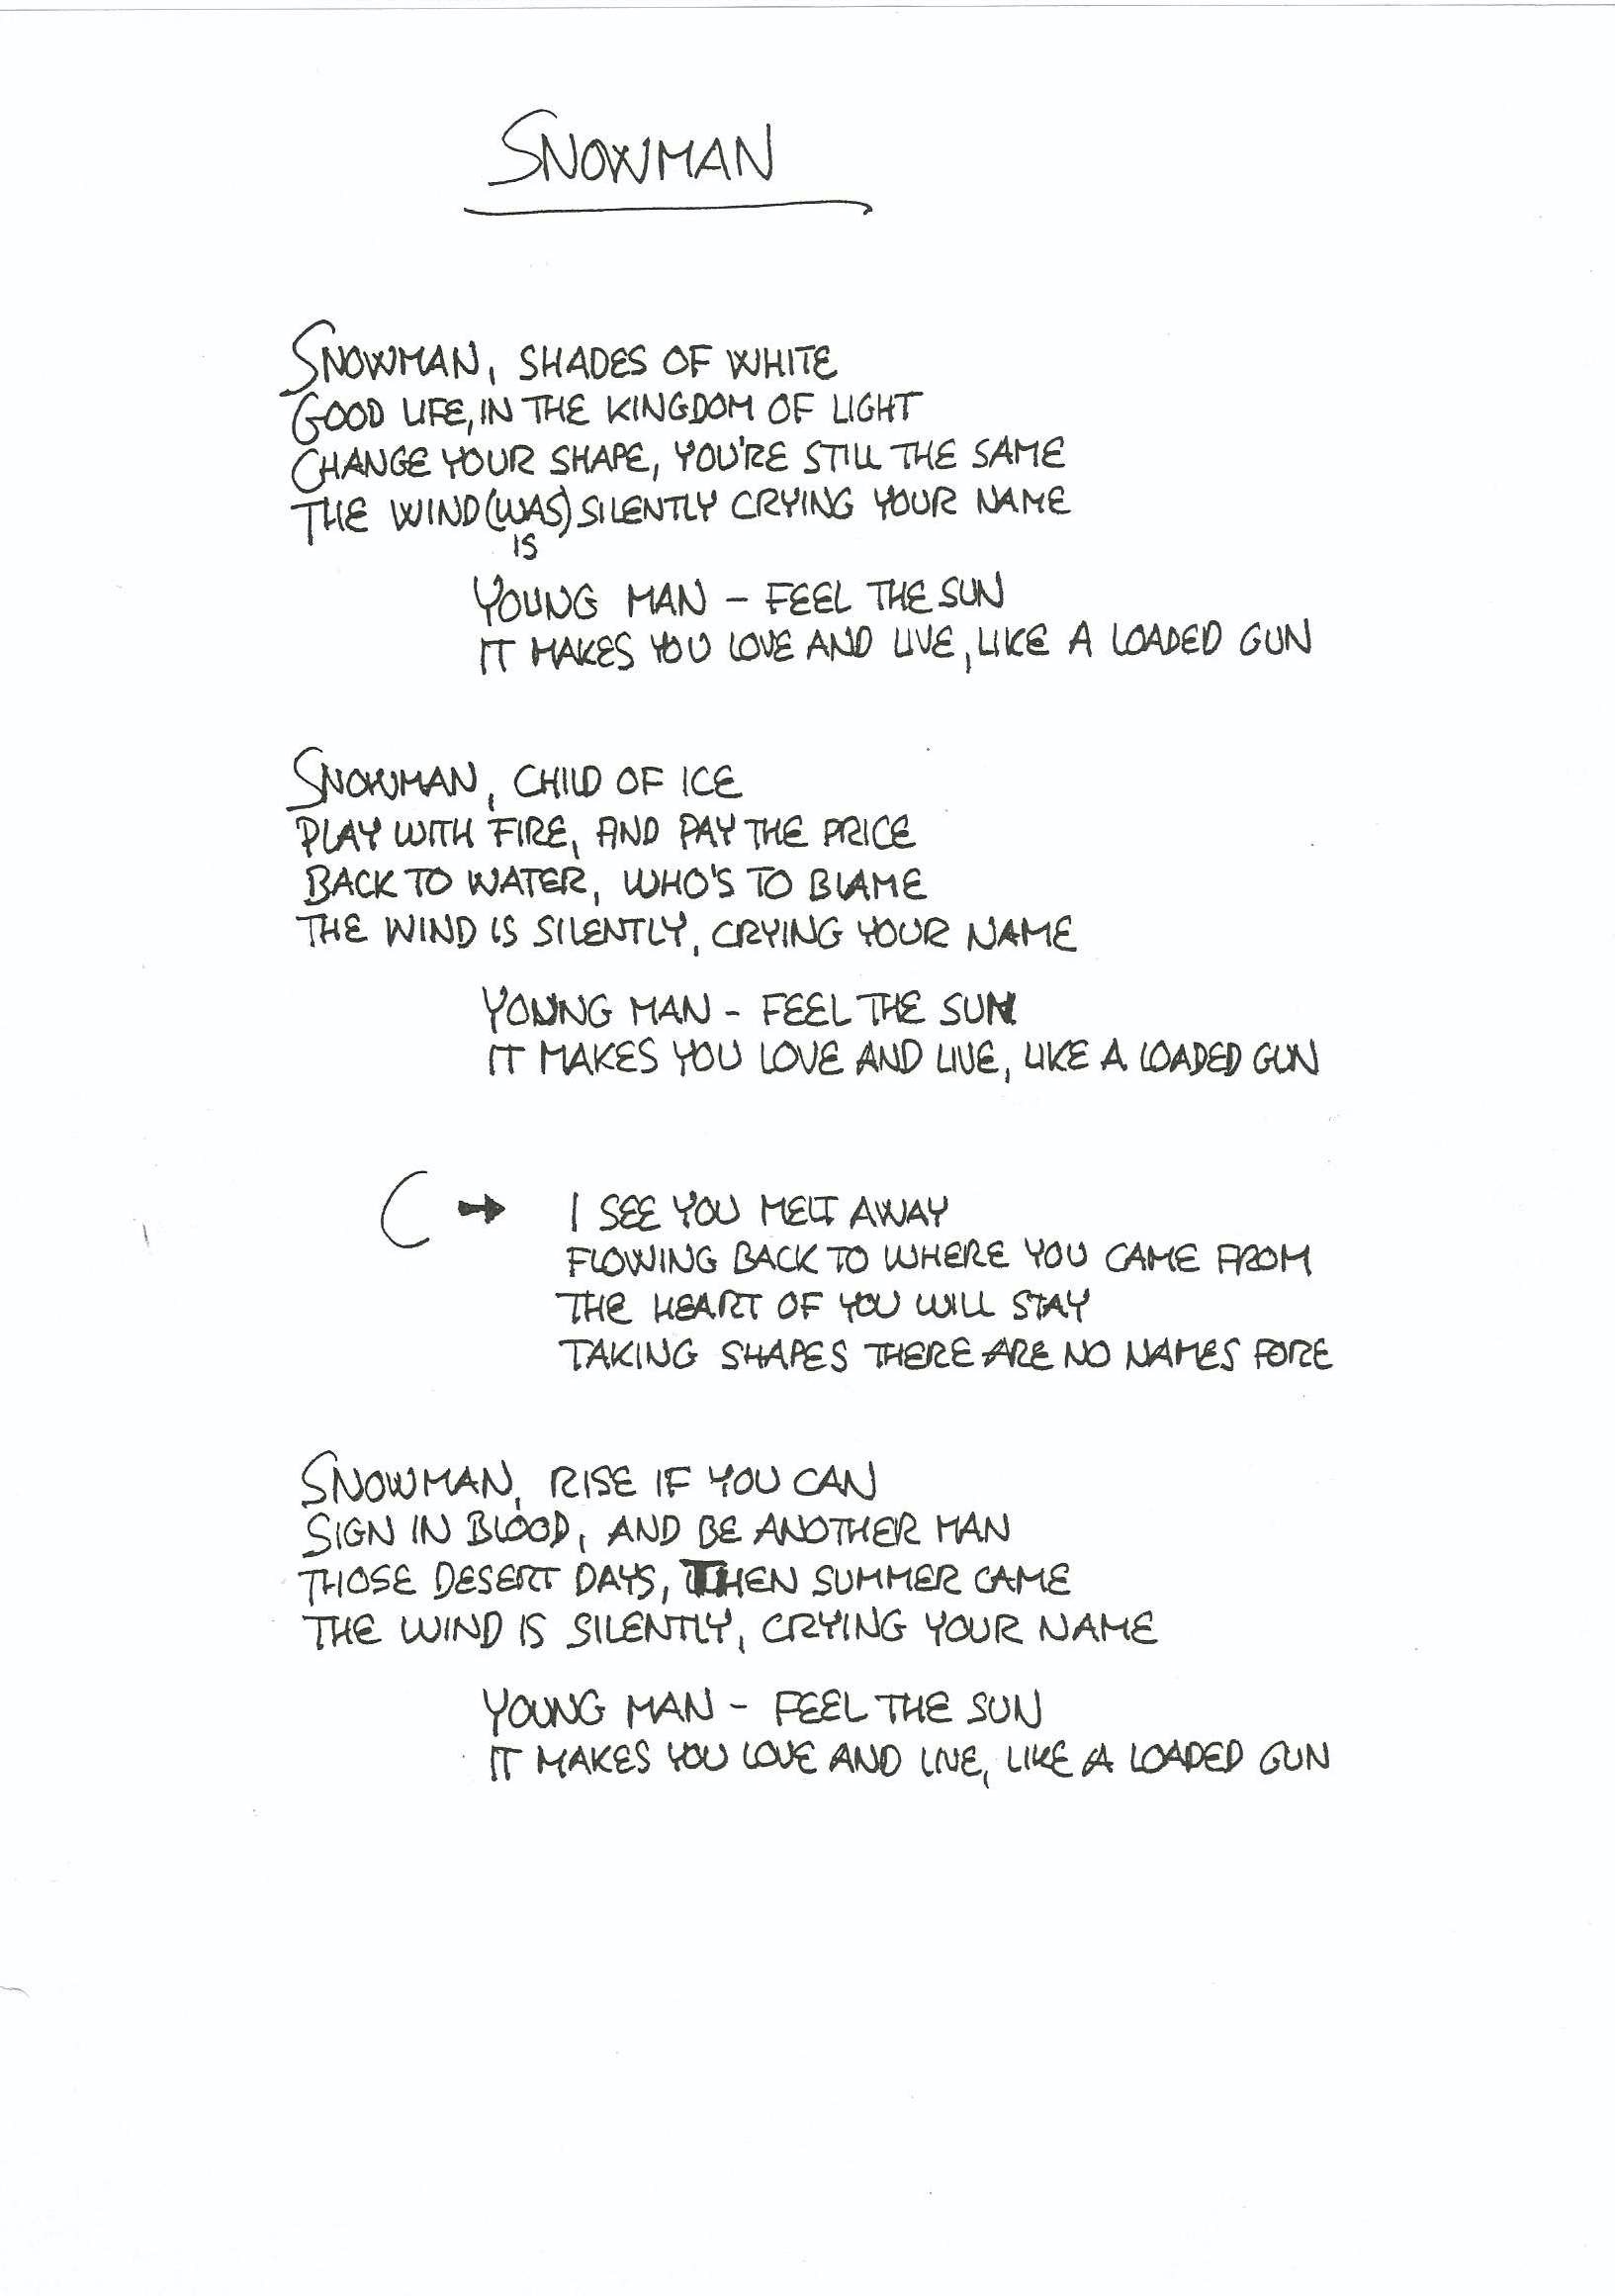 SNOWMAN
SNOWMAN, SHADES OF WHITE
GOOD LIFE, IN THE KINGDOM OF LIGHT
CHANGE YOUR SHAPE, YOU'RE STILL THE SAME
THE WIND (WAS) SILENTLY CRYING YOUR NAME
IS
YOUNG MAN – FEEL THE SUN
IT MAKES YOU LOVE AND LIVE, LIKE A LOADED GUN
SNOWMAN, CHILD OF ICE
PLAY WITH FIRE, AND PAY THE PRICE
BACK TO WATER, WHO'S TO BLAME
THE WIND IS SILENTLY, CRYING YOUR NAME
YOUNG MAN – FEEL THE SUN
IT MAKES YOU LOVE AND LIVE, LIKE A LOADED GUN
C → I SEE YOU MELT AWAY
FLOWING BACK TO WHERE YOU CAME FROM
THE HEART OF YOU WILL STAY
TAKING SHAPES THERE ARE NO NAMES FORE
SNOWMAN, RISE IF YOU CAN
SIGN IN BLOOD, AND BE ANOTHER MAN
THOSE DESERT DAYS, THEN SUMMER CAME
THE WIND IS SILENTLY, CRYING YOUR NAME
YOUNG MAN – FEEL THE SUN
IT MAKES YOU LOVE AND LIVE, LIKE A LOADED GUN